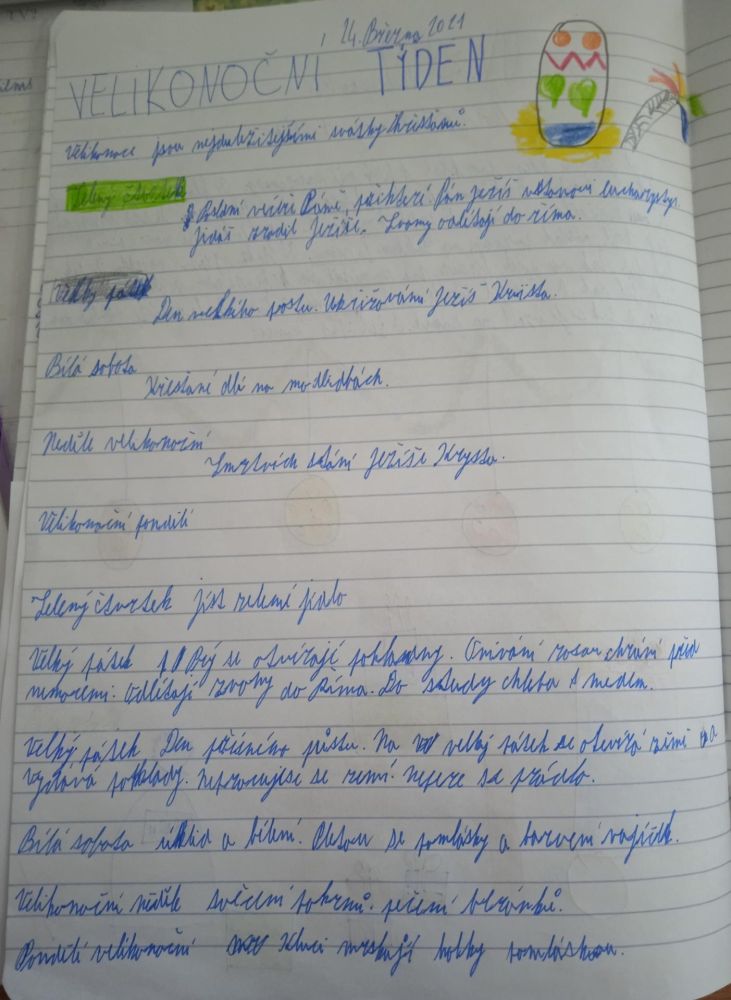 24. Března 2021
VELIKONOČNÍ TÝDEN
Velikonoce jsou nejduležitejšími svátky křestanů.
Zelený čtvrtek
Poslení večeře Páně, při kterí Pán Ježíš ustanovi eucharysty.
Jidáš zradil Ježíše. Zvony odlétají do říma.
Velký pátek
Den velkiho postu. Ukřižováni Ježíš Krista.
Bílá sobota
Křestané dlí na modlidbách.
Neděle velikonoční
Zmrtvích stání Ježíše Krysta.
Velikonoční pondělí
Zelený čtvrtek jíst zelené jídlo
Velký pátek Prý se otvírají poklady. Omívání rosou chrání před
nemocemi. Odlítají zvony do Říma. Do studny chleba s medem.
Velký pátek Den přísného půstu. Na velký pátek se otevírá země a
vydává poklady. Nepracuje se se zemí. Nepere se prádlo.
Bílá sobota úklid a bílení. Pletou se pomlásky a barvení vajíček.
Velikonoční neděle svěcení pokrmů. pečení beránků.
Pondělí velikonoční Kluci mrskají holky pomláskou.